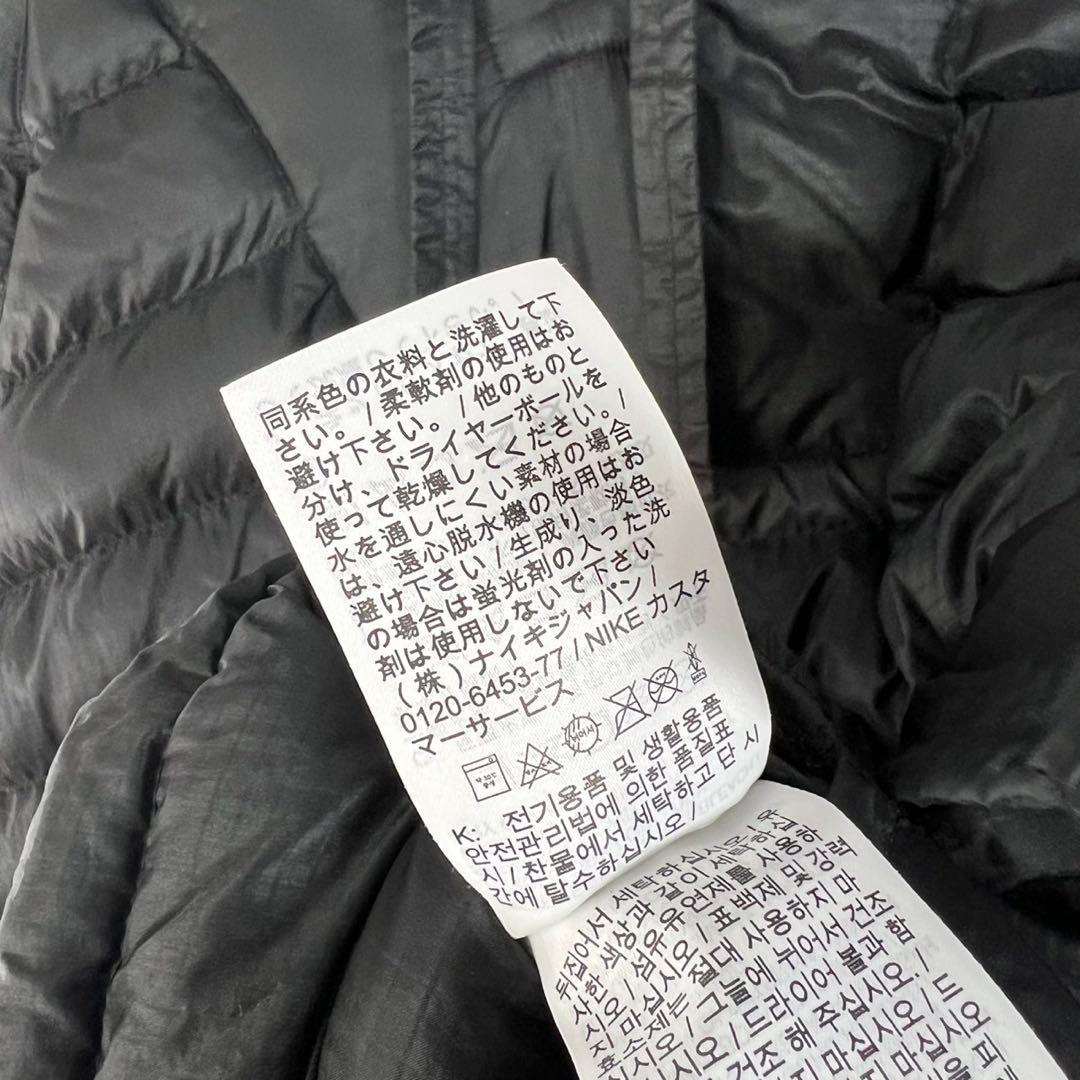 同系色の衣料と洗濯して下
さい。/柔軟剤の使用はお
避け下さい。/他のものと
分け、ドライヤーボールを
使って乾燥してください。/
水を通しにくい素材の場合
は、遠心脱水機の使用はお
避け下さい/生成り、淡色
の場合は蛍光剤の入った洗
剤は使用しないで下さい
(株)ナイキジャパン/
0120-6453-77/NIKE カスタ
マーサービス
K: 전기용품 및 생활용품
안전관리법에 의한 품질표
시/찬물에서 세탁하고 단시
간에 탈수하십시오/
뒤집어서 세탁하십시오/유
사한 색상과 같이 세탁하십
시오/섬유유연제를 사용하
지 마십시오/표백제 및 강력
효소제는 절대 사용하지 마
십시오/그늘에 뉘어서 건조
하십시오/드라이어 볼과 함
건조해 주십시오
하지 마십시오/드
마십시오